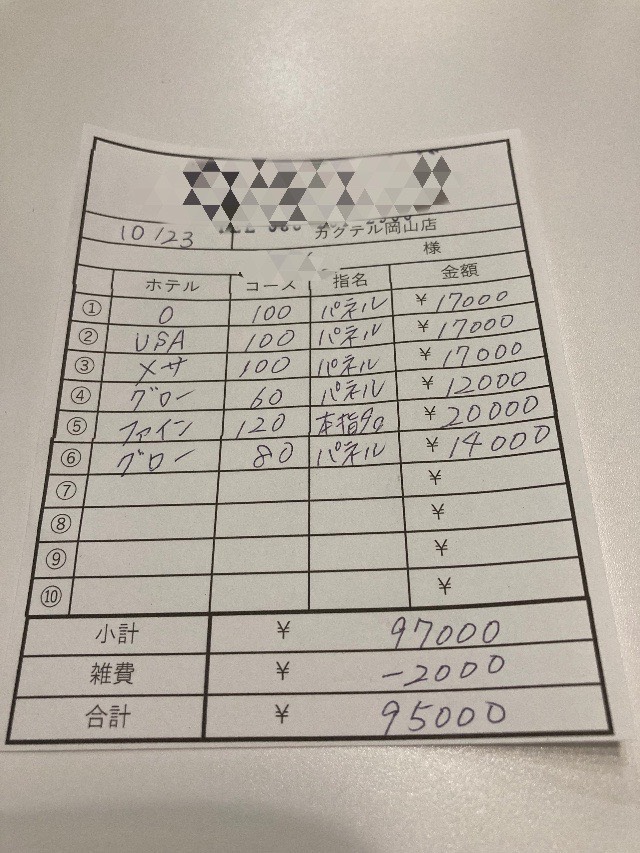 10/23 カクテル岡山店
様
ホテル コース 指名 金額
① O 100 パネル ¥17000
② USA 100 パネル ¥17000
③ メサ 100 パネル ¥17000
④ グロー 60 パネル ¥12000
⑤ ファイン 120 本指90 ¥20000
⑥ グロー 80 パネル ¥14000
⑦ ¥
⑧ ¥
⑨ ¥
⑩ ¥
小計 ¥ 97000
雑費 ¥ -2000
合計 ¥ 95000